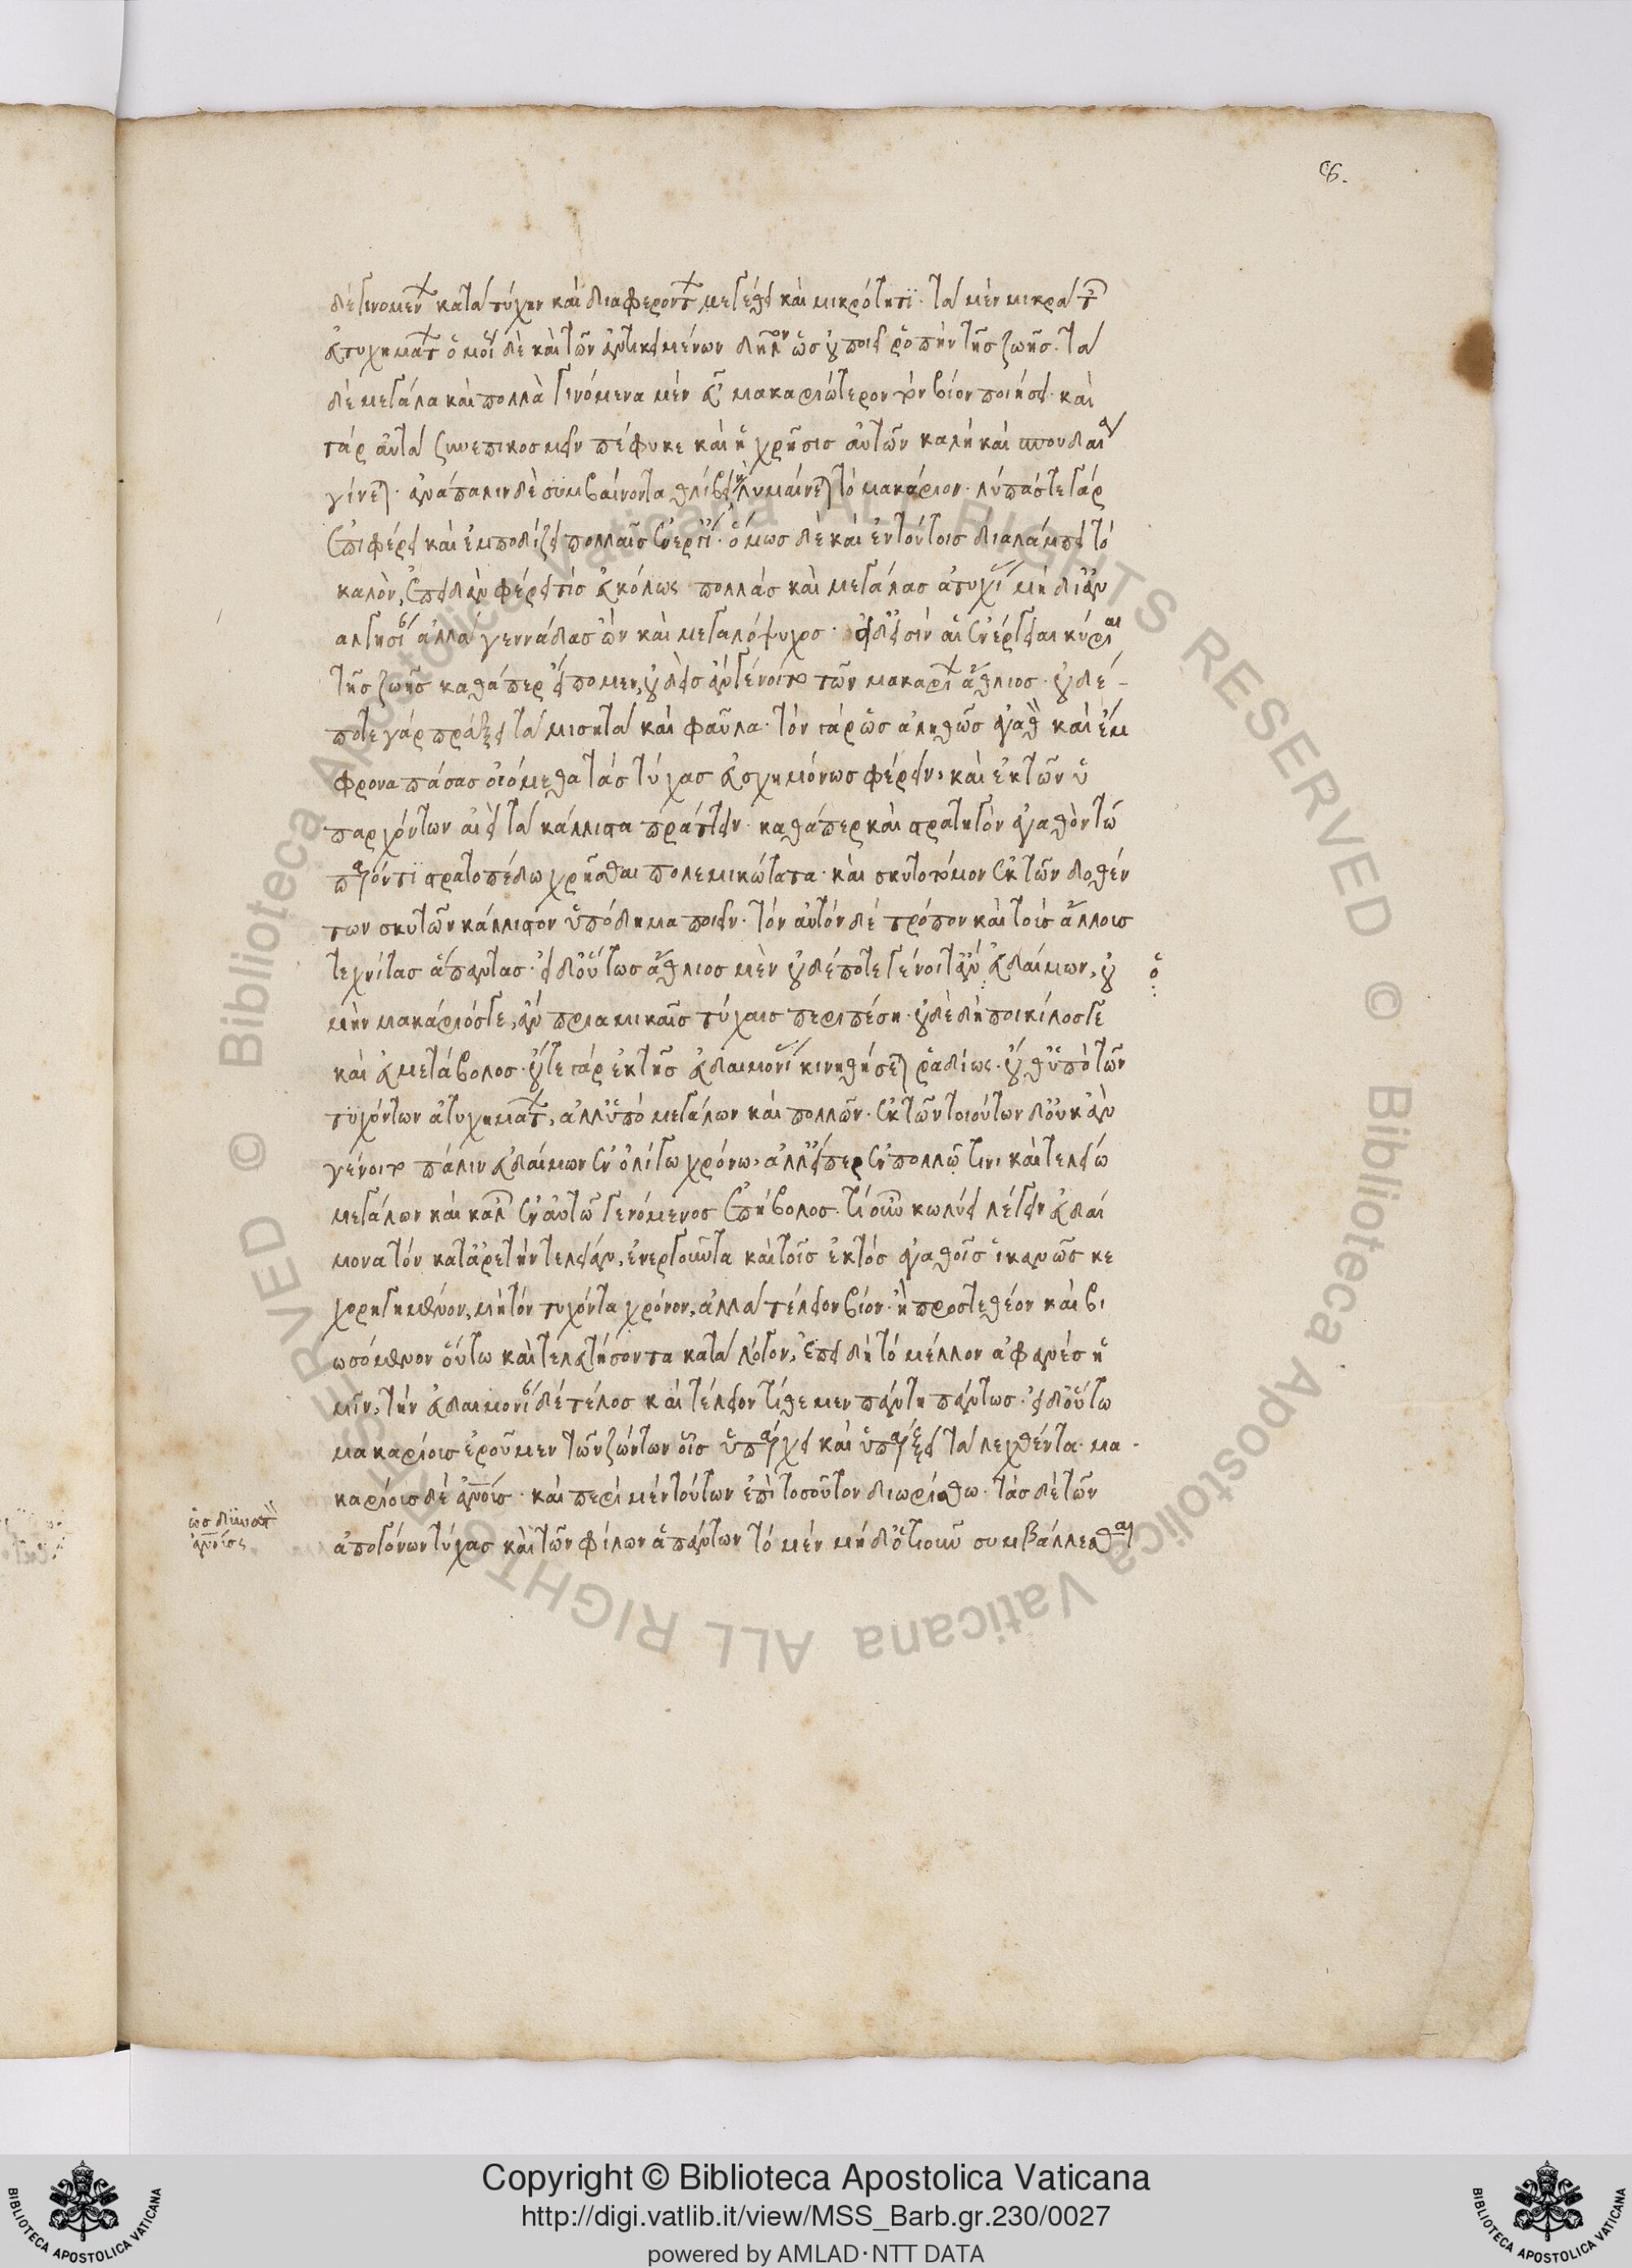 ςϛ.
δὲ γινομένων κατὰ τύχην καὶ διαφερόντων μεγέθει καὶ μικρότητι· τὰ μὲν μικρὰ τῶν
εὐτυχημάτων ὁμοίως δὲ καὶ τῶν ἀντικειμένων δῆλον ὡς οὐ ποιεῖ ῥοπὴν τῆς ζωῆς· τὰ
δὲ μεγάλα καὶ πολλὰ γινόμενα μὲν εὖ μακαριώτερον τὸν βίον ποιήσει· καὶ
γὰρ αὐτὰ συνεπικοσμεῖν πέφυκε καὶ ἡ χρῆσις αὐτῶν καλὴ καὶ σπουδαία
γίνεται· ἀνάπαλιν δὲ συμβαίνοντα θλίβει καὶ λυμαίνεται τὸ μακάριον· λύπας τε γὰρ
ἐπιφέρει καὶ ἐμποδίζει πολλαῖς ἐνεργείαις· ὅμως δὲ καὶ ἐν τούτοις διαλάμπει τὸ
καλὸν, ἐπειδὰν φέρει τις εὐκόλως πολλὰς καὶ μεγάλας ἀτυχίας μὴ δι' ἀν
αλγησίαν ἀλλὰ γεννάδας ὢν καὶ μεγαλόψυχος· εἰ δ' εἰσὶν αἱ ἐνέργειαι κύριαι
τῆς ζωῆς καθάπερ εἴπομεν, οὐδεὶς ἂν γένοιτο τῶν μακαρίων ἄθλιος· οὐδέ-
ποτε γὰρ πράξει τὰ μισητὰ καὶ φαῦλα· τὸν γὰρ ὡς ἀληθῶς ἀγαθὸν καὶ ἔμ
φρονα πάσας οἰόμεθα τὰς τύχας εὐσχημόνως φέρειν, καὶ ἐκ τῶν ὑ
παρχόντων ἀεὶ τὰ κάλλιστα πράττειν· καθάπερ καὶ στρατηγὸν ἀγαθὸν τῶ
παρόντι στρατοπέδω χρῆσθαι πολεμικώτατα· καὶ σκυτοτόμον ἐκ τῶν δοθέν
των σκυτῶν κάλλιστον ὑπόδημα ποιεῖν· τὸν αὐτὸν δὲ τρόπον καὶ τοὺς ἄλλους
τεχνίτας ἅπαντας· εἰ δ' οὕτως ἄθλιος μὲν οὐδέποτε γένοιτ' ἂν εὐδαίμων, οὐ
ὁ
μὴν μακάριός γε, ἂν πριαμικαῖς τύχαις περιπέση· οὐδὲ δὴ ποικίλος γε
καὶ εὐμετάβολος· οὔτε γὰρ ἐκ τῆς εὐδαιμονίας κινηθήσεται ῥαδίως· οὔθ' ὑπὸ τῶν
τυχόντων ἀτυχημάτων, ἀλλ' ὑπὸ μεγάλων καὶ πολλῶν· ἐκ τῶν τοιούτων δ' οὐκ ἂν
γένοιτο πάλιν εὐδαίμων ἐν ὀλίγω χρόνω, ἀλλ' εἴπερ ἐν πολλῶ τινι καὶ τελείω
μεγάλων καὶ καλῶν ἐν αὐτῶ γενόμενος ἐπήβολος· τί οὖν κωλύει λέγειν εὐδαί
μονα τὸν κατ' ἀρετὴν τελείαν, ἐνεργοῦντα καὶ τοῖς ἐκτὸς ἀγαθοῖς ἱκανῶς κε
χορηγημένον, μὴ τὸν τυχόντα χρόνον, ἀλλὰ τέλειον βίον· ἢ προσθετέον καὶ βι
ωσόμενον οὕτω καὶ τελευτήσοντα κατὰ λόγον, ἐπειδὴ τὸ μέλλον ἀφανὲς ἡ
μῖν, τὴν εὐδαιμονίαν δὲ τέλος καὶ τέλειον τίθεμεν πάντη πάντως· εἰ δ' οὕτω
μακαρίους ἐροῦμεν τῶν ζώντων οἷς ὑπάρχει καὶ ὑπάρξει τὰ λεχθέντα· μα-
καρίους δὲ ἀνθρώπους· καὶ περὶ μὲν τούτων ἐπὶ τοσοῦτον διωρίσθω· τὰς δὲ τῶν
ἀπογόνων τύχας καὶ τῶν φίλων ἁπάντων τὸ μὲν μηδ' ὁτιοῦν συμβάλλεσθαι
Copyright © Biblioteca Apostolica Vaticana
http://digi.vatlib.it/view/MSS_Barb.gr.230/0027
powered by AMLAD·NTT DATA
BIBLIOTECA APOSTOLICA VATICANA
BIBLIOTECA APOSTOLICA VATICANA
© Biblioteca Apostolica Vaticana ALL RIGHTS RESERVED © Biblioteca Apostolica Vaticana ALL RIGHTS RESERVED